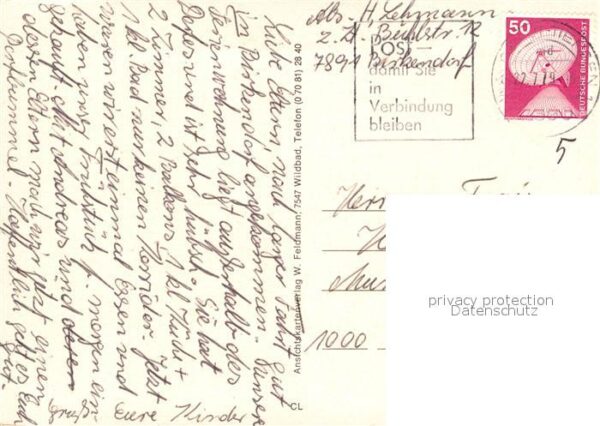 Abs. H. Lehmann
z. Zt. Bündtstr. 12
7891 Birkendorf
POST
damit Sie
in
Verbindung
bleiben
50
DEUTSCHE BUNDESPOST
5
Liebe Eltern, nach langer Fahrt gut
in Birkendorf angekommen. Unsere
Ferienwohnung liegt außerhalb des
Dorfes und ist sehr hübsch. Sie hat
2 Zimmer, 2 Balkons, 1 kl. Küche +
1 kl. Bad nur keinen Korridor. Jetzt
waren wir erst einmal Essen und
haben zum Frühstück f. morgen ein-
gekauft. Mit Andreas und
dessen Eltern machen wir jetzt einen
Dorfbummel. Hoffentlich geht es Euch
gut.
Gruß Eure Kinder
Ansichtskartenverlag W. Feldmann, 7547 Wildbad, Telefon (0 70 81) 28 40
CL
Herrn
1000
privacy protection
Datenschutz